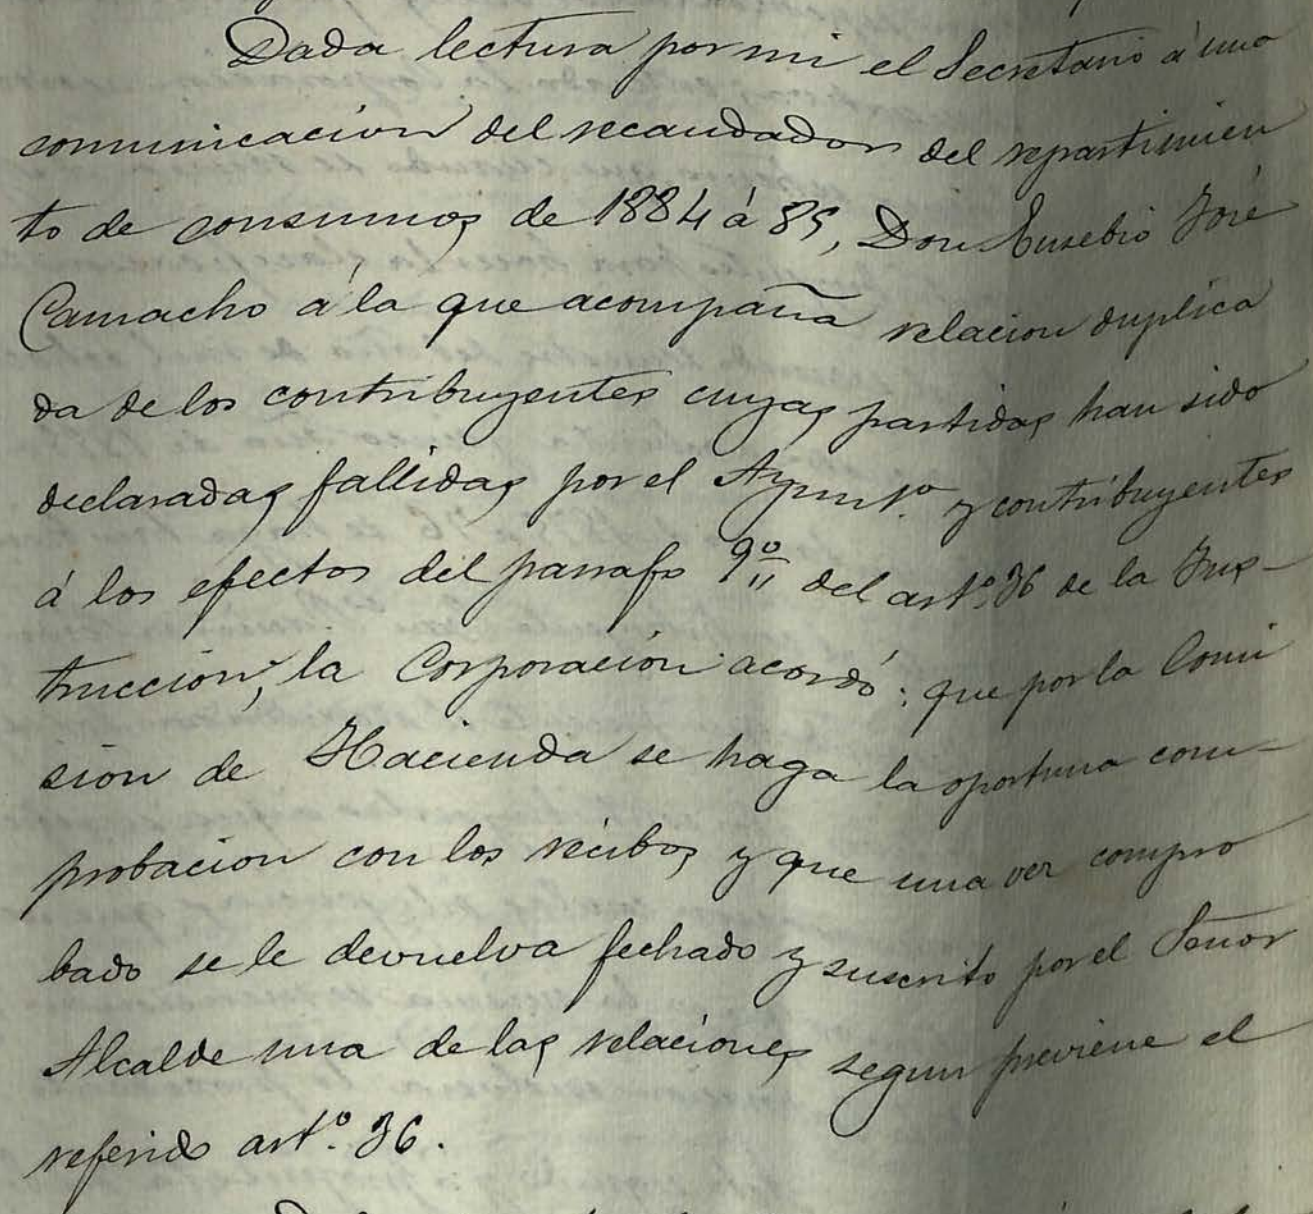 Dada lectura por mi el Secretario á una
comunicacion del recaudador del repartimien
to de consumos de 1884 á 85, Don Eusebio José
Camacho á la que acompaña relacion duplica
da de los contribuyentes cuyas partidas han sido
declaradas fallidas por el Ayunt.º y contribuyentes
á los efectos del parrafo 9º del artº. 36 de la Ins-
truccion, la Corporacion acordó: que por la Comi
sion de Hacienda se haga la oportuna com-
probacion con los recibos y que una vez compro
bado se le devuelva fechado y suscrito por el Señor
Alcalde una de las relaciones segun previene el
referido artº. 36.